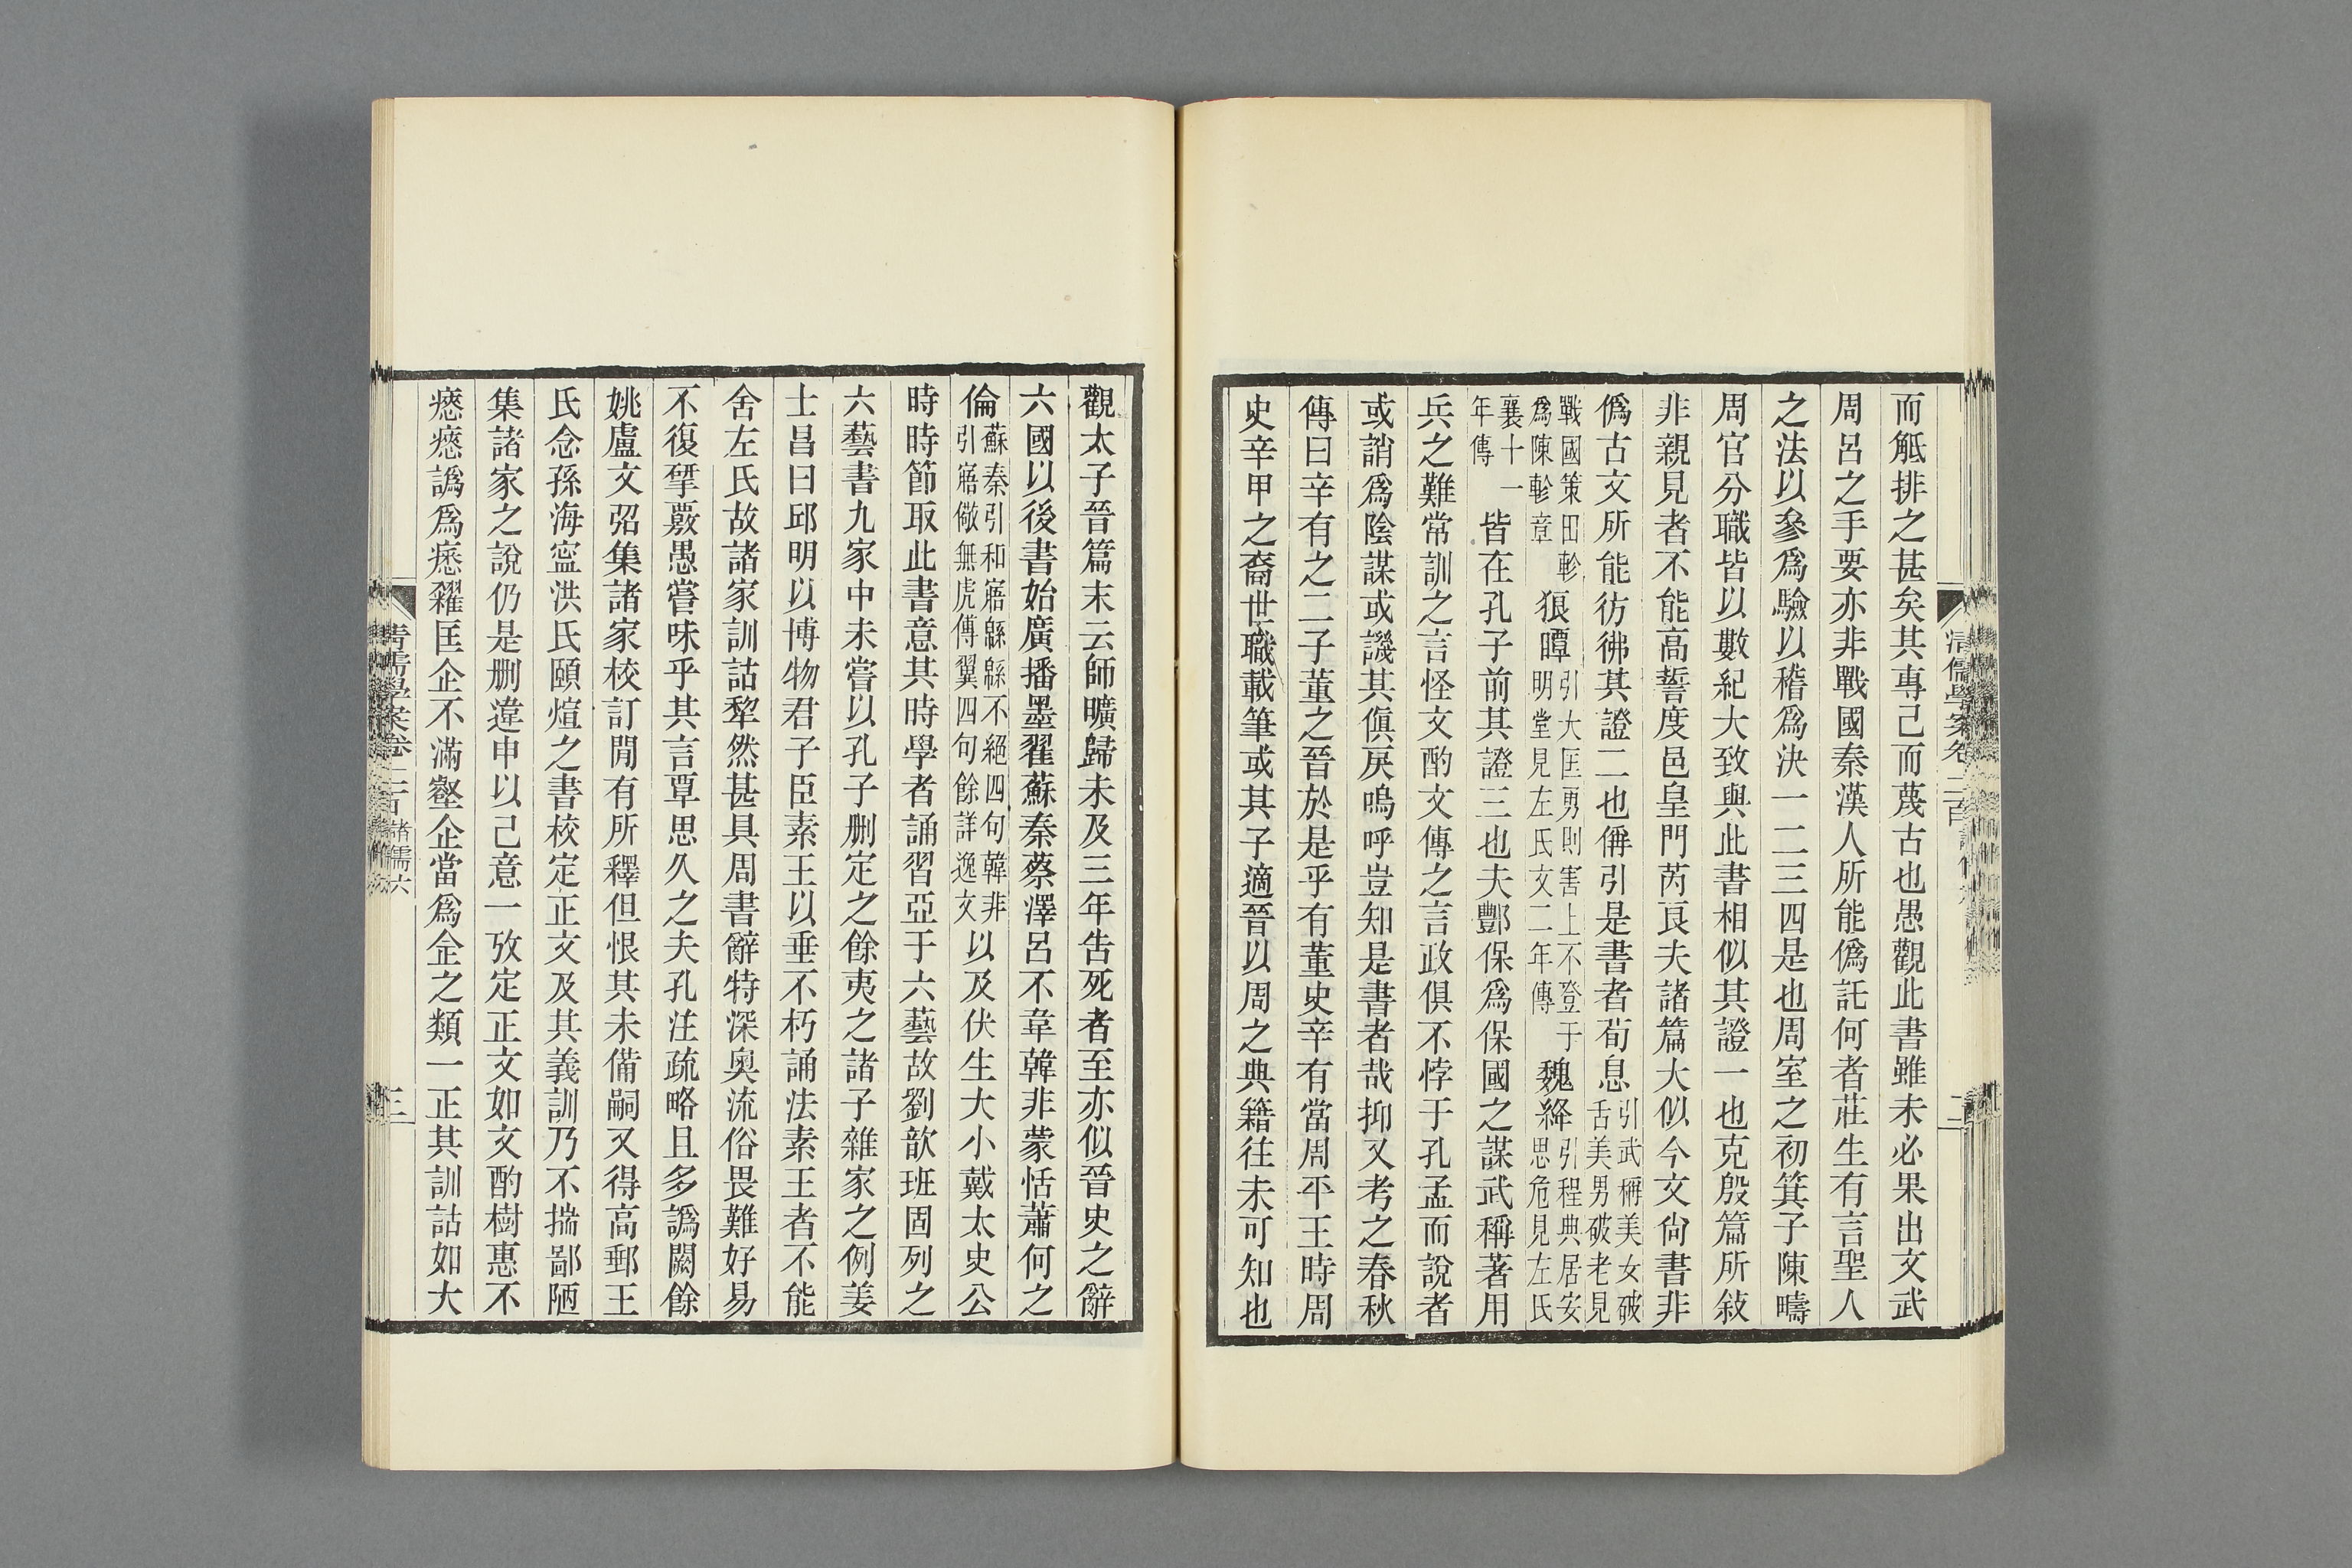 而觝排之甚矣其專己而蔑古也愚觀此書雖未必果出文武
周呂之手要亦非戰國秦漢人所能僞託何者莊生有言聖人
之法以參爲驗以稽爲決一二三四是也周室之初箕子陳疇
周官分職皆以數紀大致與此書相似其證一也克殷篇所敍
非親見者不能商誓度邑皇門芮良夫諸篇大似今文尙書非
僞古文所能彷彿其證二也偁引是書者荀息引武稱美女破舌美男破老見
戰國策田軫爲陳軫章狼瞫引大匡勇則害上不登于明堂見左氏文二年傳魏絳引程典居安思危見左氏
襄十一年傳皆在孔子前其證三也夫酆保爲保國之謀武稱著用
兵之難常訓之言怪文酌文傳之言政俱不悖于孔孟而說者
或誚爲陰謀或譏其傎戾嗚呼豈知是書者哉抑又考之春秋
傳曰辛有之二子董之晉於是乎有董史辛有當周平王時周
史辛甲之裔世職載筆或其子適晉以周之典籍往未可知也
清儒學案卷二百
二
觀太子晉篇末云師曠歸未及三年告死者至亦似晉史之辭
六國以後書始廣播墨翟蘇秦蔡澤呂不韋韓非蒙恬蕭何之
倫蘇秦引和寤緜緜不絕四句韓非引寤儆無虎傅翼四句餘詳逸文以及伏生大小戴太史公
時時節取此書意其時學者誦習亞于六藝故劉歆班固列之
六藝書九家中未嘗以孔子删定之餘夷之諸子雜家之例姜
士昌曰邱明以博物君子臣素王以垂不朽誦法素王者不能
舍左氏故諸家訓詁犂然甚具周書辭特深奧流俗畏難好易
不復揅覈愚嘗味乎其言覃思久之夫孔注疏略且多譌闕餘
姚盧文弨集諸家校訂閒有所釋但恨其未備嗣又得高郵王
氏念孫海寧洪氏頤煊之書校定正文及其義訓乃不揣鄙陋
集諸家之說仍是删違申以己意一攷定正文如文酌樹惠不
瘱瘱譌爲㥣糴匡企不滿壑企當爲仚之類一正其訓詁如大
清儒學案卷二百 諸儒六
三